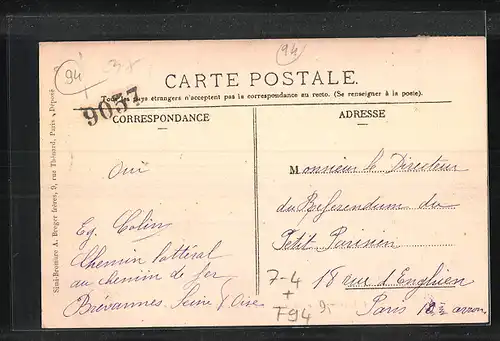 94
94
CARTE POSTALE.
Tous les pays étrangers n'acceptent pas la correspondance au recto. (Se renseigner à la poste).
9057
CORRESPONDANCE
ADRESSE
Simi-Bromure A. Breger frères, 9, rue Thénard, Paris - Déposé
Oui
Eg. Colin
Chemin lattéral
au chemin de fer
Brévannes. Seine & Oise
Monsieur le Directeur
du Referendum du
Petit Parisien
18 rue d'Enghien
Paris
7-4
+
F94